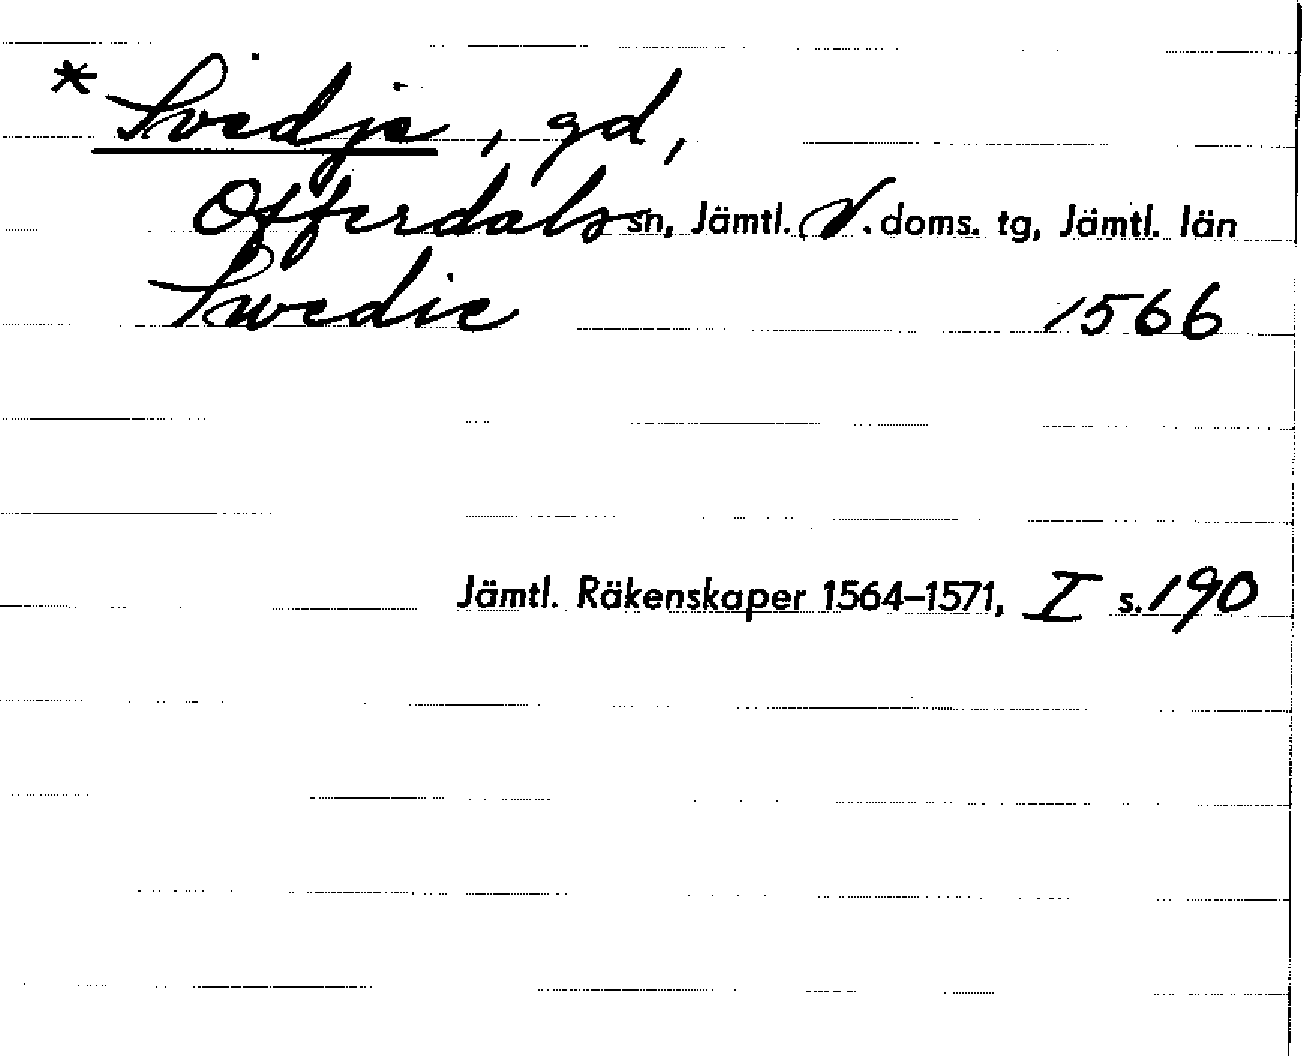 * Svedje, gd,
Offerdals sn, Jämtl. V. doms. tg, Jämtl. län
Swedie 1566
Jämtl. Räkenskaper 1564-1571, I s. 190